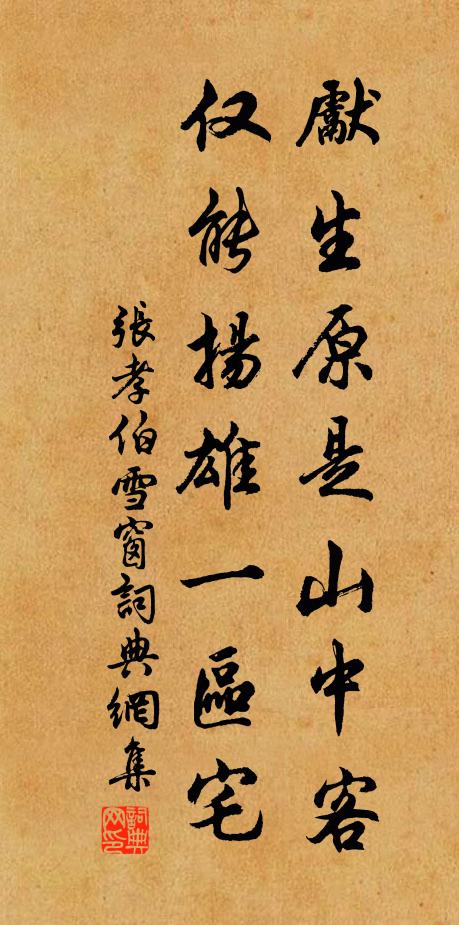 獻生原是山中客
仅能揚雄一區宅
張孝伯雪窗詞典網集
詞典网印